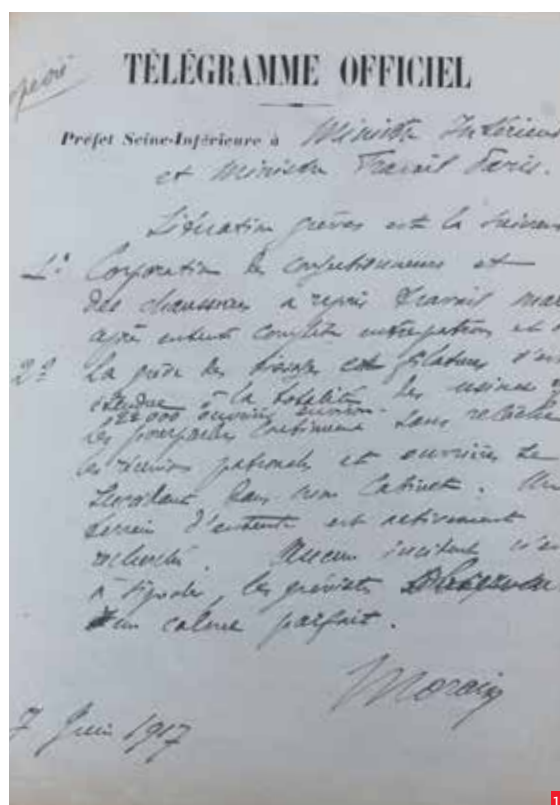 opérié
TÉLÉGRAMME OFFICIEL
Préfet Seine-Inférieure à Ministre Intérieur
et Ministre Travail Paris.
Situation grèves est la suivan
1º Corporation de confectionneurs et
des chaussures a repris travail ma
après entente complète entre patrons et
2º La grève des tissages et filatures s'e
étendue à la totalité des usines
22000 ouvriers environ.
Les pourparlers continuent sans relâche
les réunions patronales et ouvrières se
succèdent dans mon Cabinet. Un
terrain d'entente est activement
recherché. Aucun incident n'e
à signaler, les grévistes
d'un calme parfait.
Morain
7 Juin 1917
1